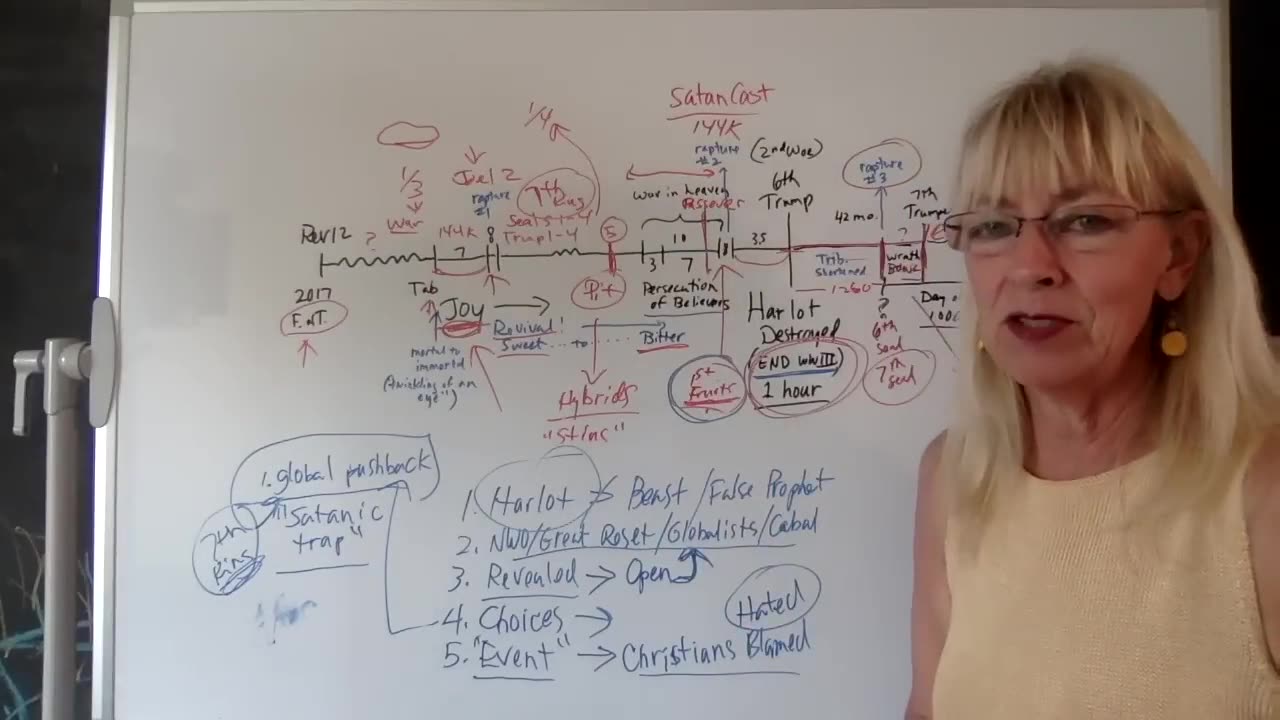 Satan Cast
144K
1/4
rapture
#2
(2nd Woe)
rapture
#3
1/3
Joel 2
rapture
#1
7th
King
war in heaven
Passover
6th
Trump
42 mo.
7th
Trump
Rev 12
?
war
144K
7
8
Seals 1-4
Trump 1-4
5
10
3
7
3.5
?
Trib.
shortened
1260
wrath
Bowls
2017
Tab
Joy
Revival!
Sweet ... to ... Bitter
Pit
Persecution
of Believers
Harlot
Destroyed
(END WWIII)
1 hour
?
6th
seal
7th seal
Day o
mortal to
immortal
(twinkling of an
eye")
1st
Fruits
Hybrids
1. global pushback
"Satanic
trap"
7th
King
1. Harlot → Beast/False Prophet
2. NWO/Great Reset/Globalists/Cabal
3. Revealed → Open
4. Choices →
Hated
5. "Event" → Christians Blamed